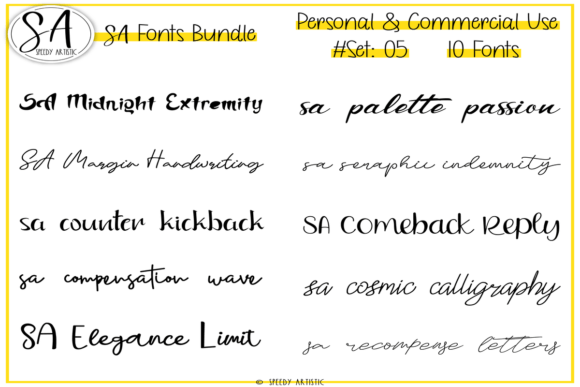 SA
SPEEDY ARTISTIC
SA Fonts Bundle
Personal & Commercial Use
#Set: 05 10 Fonts
SA Midnight Extremity
SA Margin Handwriting
sa counter kickback
sa compensation wave
SA Elegance Limit
sa palette passion
sa seraphic indemnity
SA Comeback Reply
sa cosmic calligraphy
sa recompense letters
© SPEEDY ARTISTIC